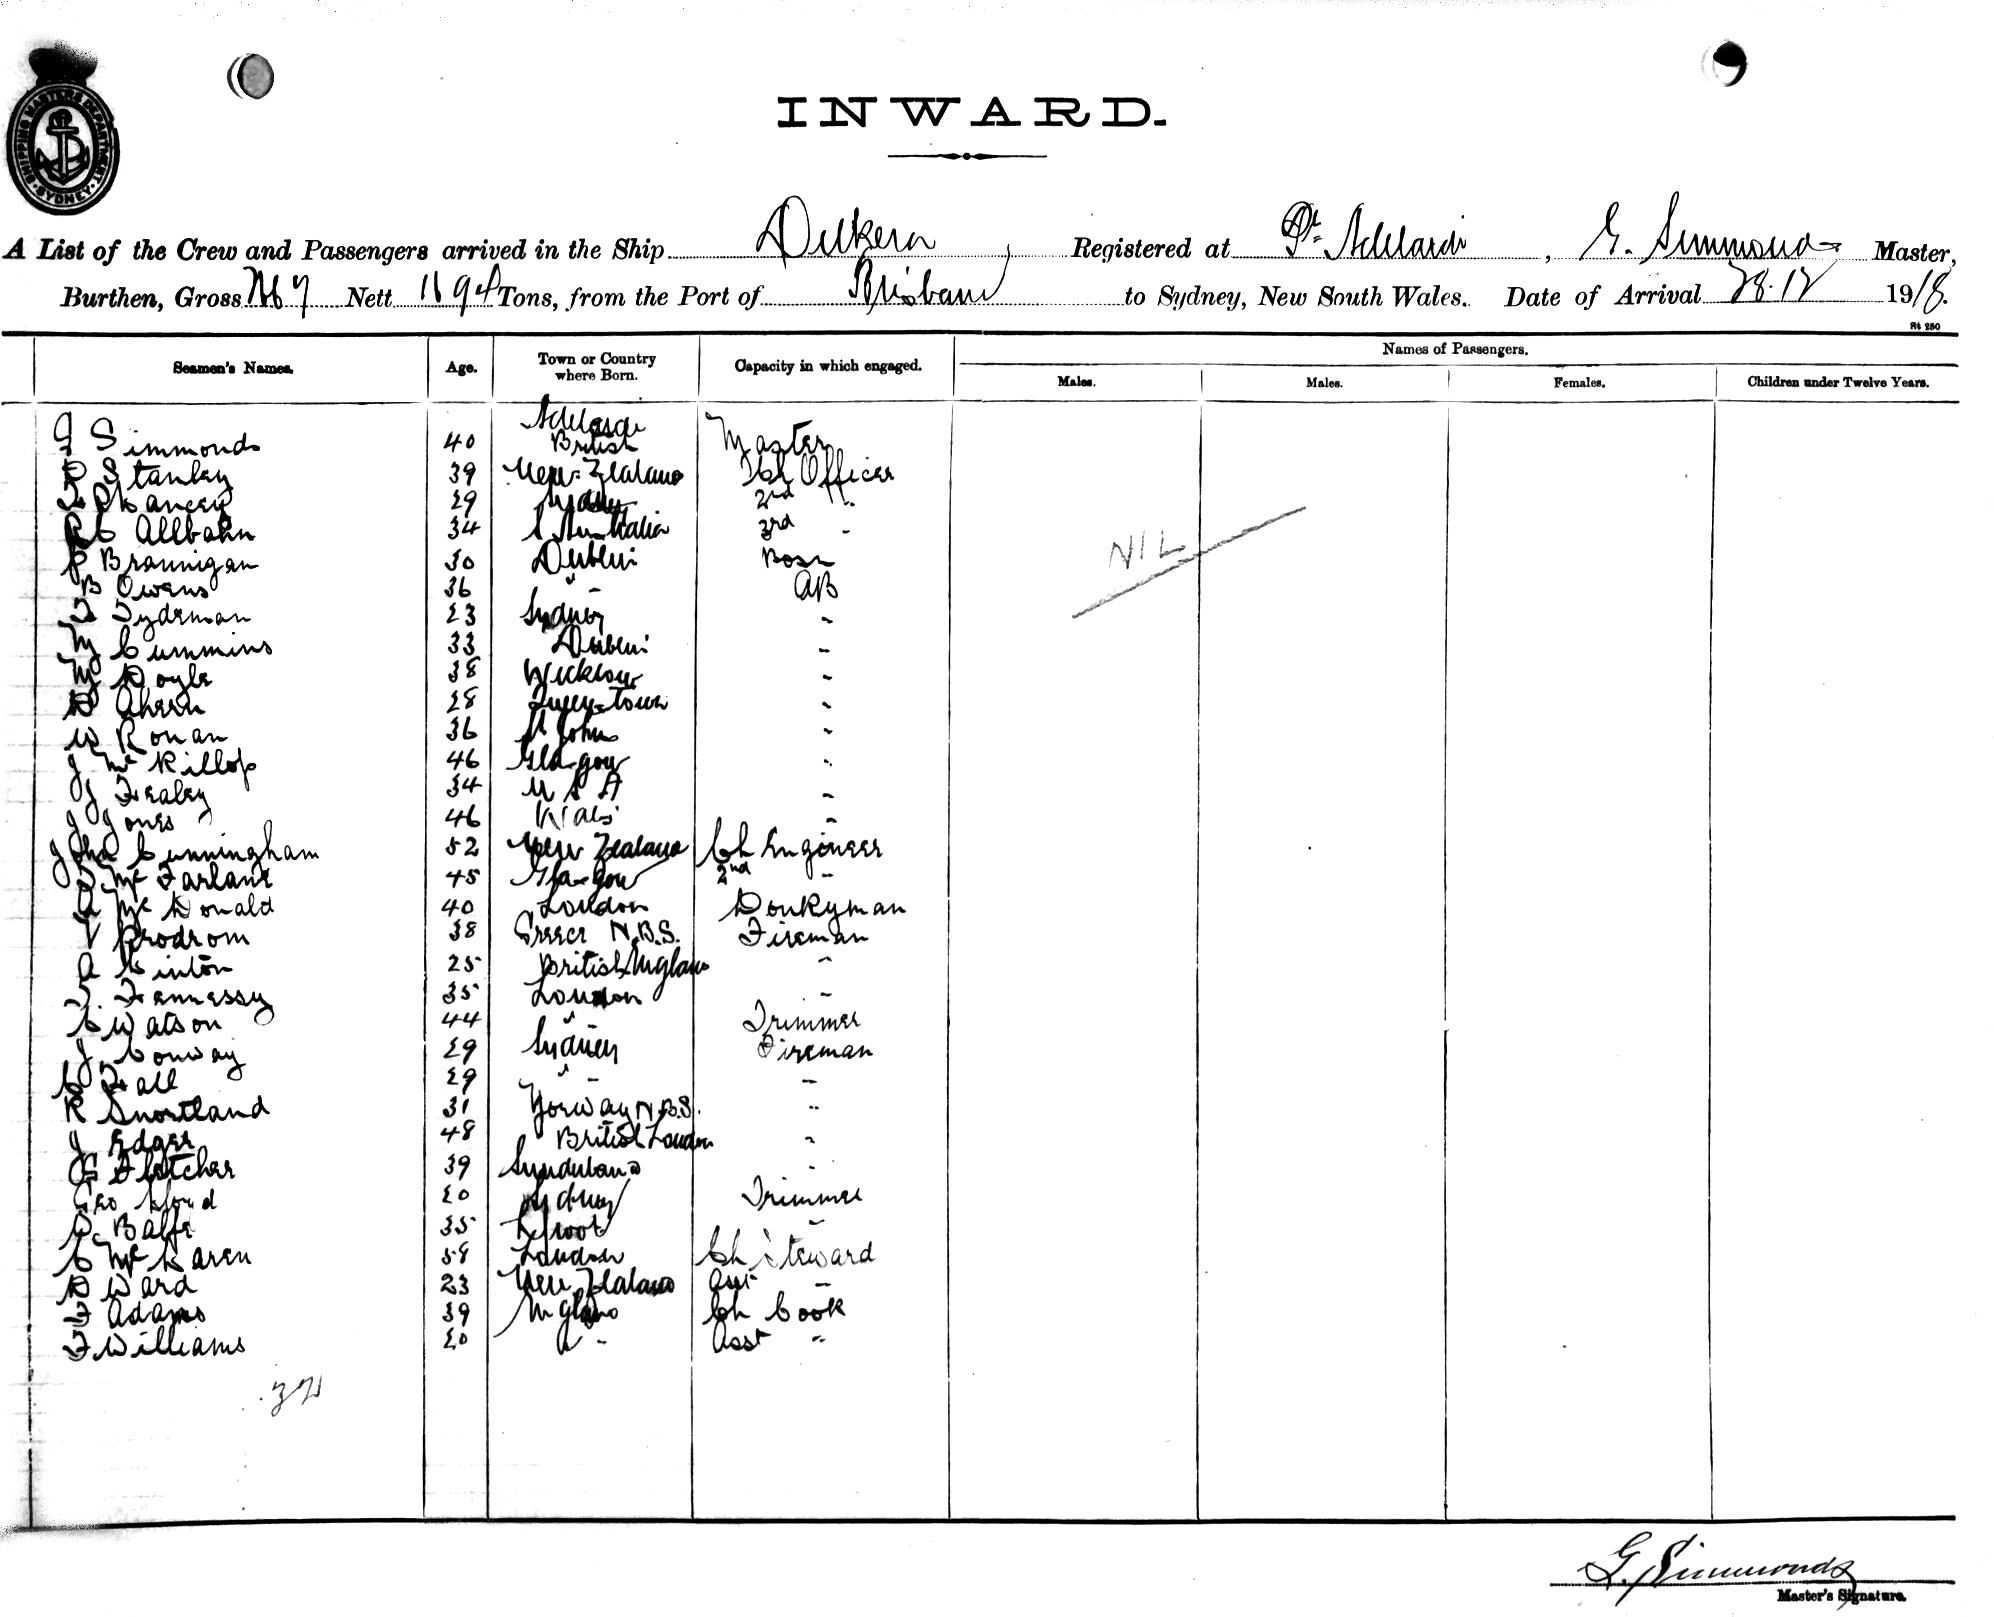 SHIPPING MASTERS DEPARTMENT
SYDNEY
INWARD.
A List of the Crew and Passengers arrived in the Ship Dilkera, Registered at Pt Adelaide, G. Simmonds Master,
Burthen, Gross Nett 1194 Tons, from the Port of Brisbane to Sydney, New South Wales. Date of Arrival 28.12 1918.
St 250
Seamen's Names. Age. Town or Country where Born. Capacity in which engaged. Names of Passengers.
Males. Males. Females. Children under Twelve Years.
G Simmonds 40 Adelaide British Master
Stanley 39 New Zealand Ch Officer
29 Sydney 2nd "
34 S Australia 3rd "
P Brannigan 30 Dublin Bosn
B Owens 36 " - AB
T Tydeman 23 Sydney "
M Cummins 33 Dublin "
M Doyle 38 Wicklow "
D Ahern 28 Queenstown "
W Ronan 36 St Johns "
J McKillop 46 Glasgow "
J Fealey 34 U S A "
J Jones 46 Wales "
John Cunningham 52 New Zealand Ch Engineer
McFarlane 45 Glasgow 2nd "
A McDonald 40 London Donkyman
V Prodrom 38 Greece N.B.S. Fireman
A Linton 25 British England "
T. Fennessy 35 London "
C Watson 44 " Trimmer
J. Conway 29 Sydney Fireman
29 " - "
R Snortland 31 Norway N.B.S. "
J Edger 48 British London "
G Fletcher 39 Sunderland "
Geo 20 Sydney Trimmer
Balfe 35 L'pool "
C McLaren 58 London Ch Steward
D Ward 23 New Zealand Asst "
F Adams 39 England Ch Cook
F Williams 20 " - Asst "
NIL
32
G. Simmonds
Master's Signature.